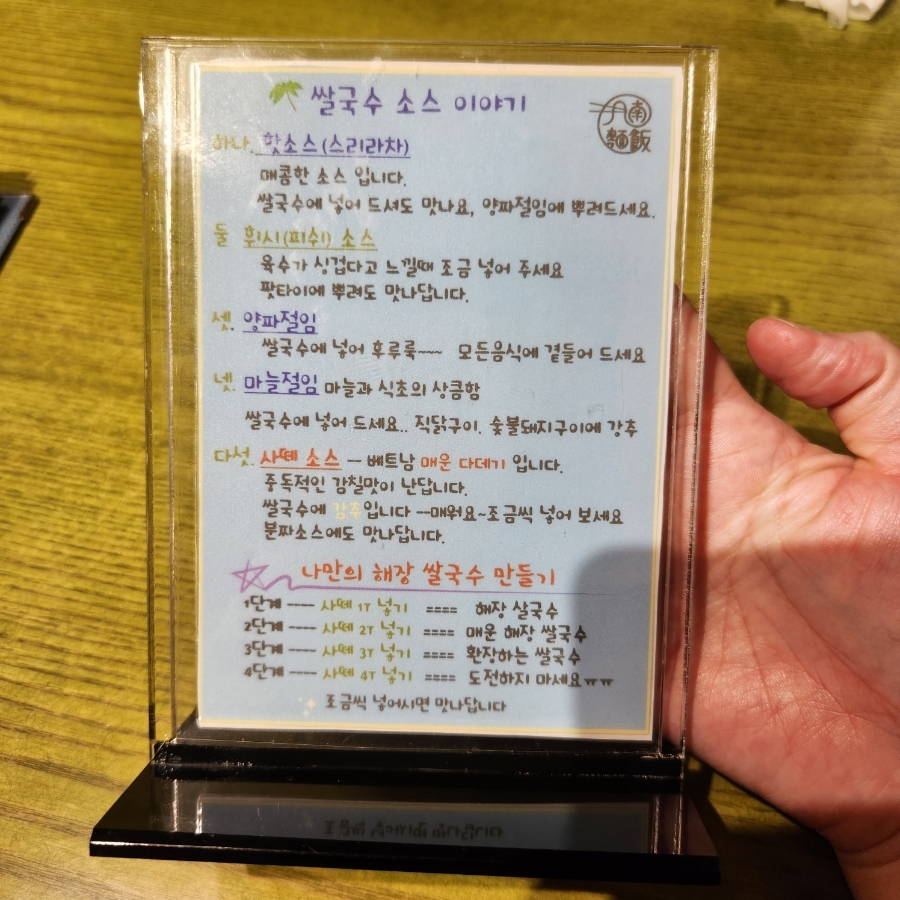 쌀국수 소스 이야기
月南
麵飯
하나. 핫소스(스리라차)
매콤한 소스 입니다.
쌀국수에 넣어 드셔도 맛나요, 양파절임에 뿌려드세요.
둘 휘시(피쉬) 소스
육수가 싱겁다고 느낄때 조금 넣어 주세요
팟타이에 뿌려도 맛나답니다.
셋. 양파절임
쌀국수에 넣어 후루룩~~~ 모든음식에 곁들어 드세요
넷. 마늘절임 마늘과 식초의 상큼함
쌀국수에 넣어 드세요.. 직닭구이. 숯불돼지구이에 강추
다섯. 사떼 소스 -- 베트남 매운 다데기 입니다.
중독적인 감칠맛이 난답니다.
쌀국수에 강추입니다 ---매워요~조금씩 넣어 보세요
분짜소스에도 맛나답니다.
나만의 해장 쌀국수 만들기
1단계 ---- 사떼 1T 넣기 ==== 해장 쌀국수
2단계 ---- 사떼 2T 넣기 ==== 매운 해장 쌀국수
3단계 ---- 사떼 3T 넣기 ==== 환장하는 쌀국수
4단계 ---- 사떼 4T 넣기 ==== 도전하지 마세요ㅠㅠ
조금씩 넣어시면 맛나답니다